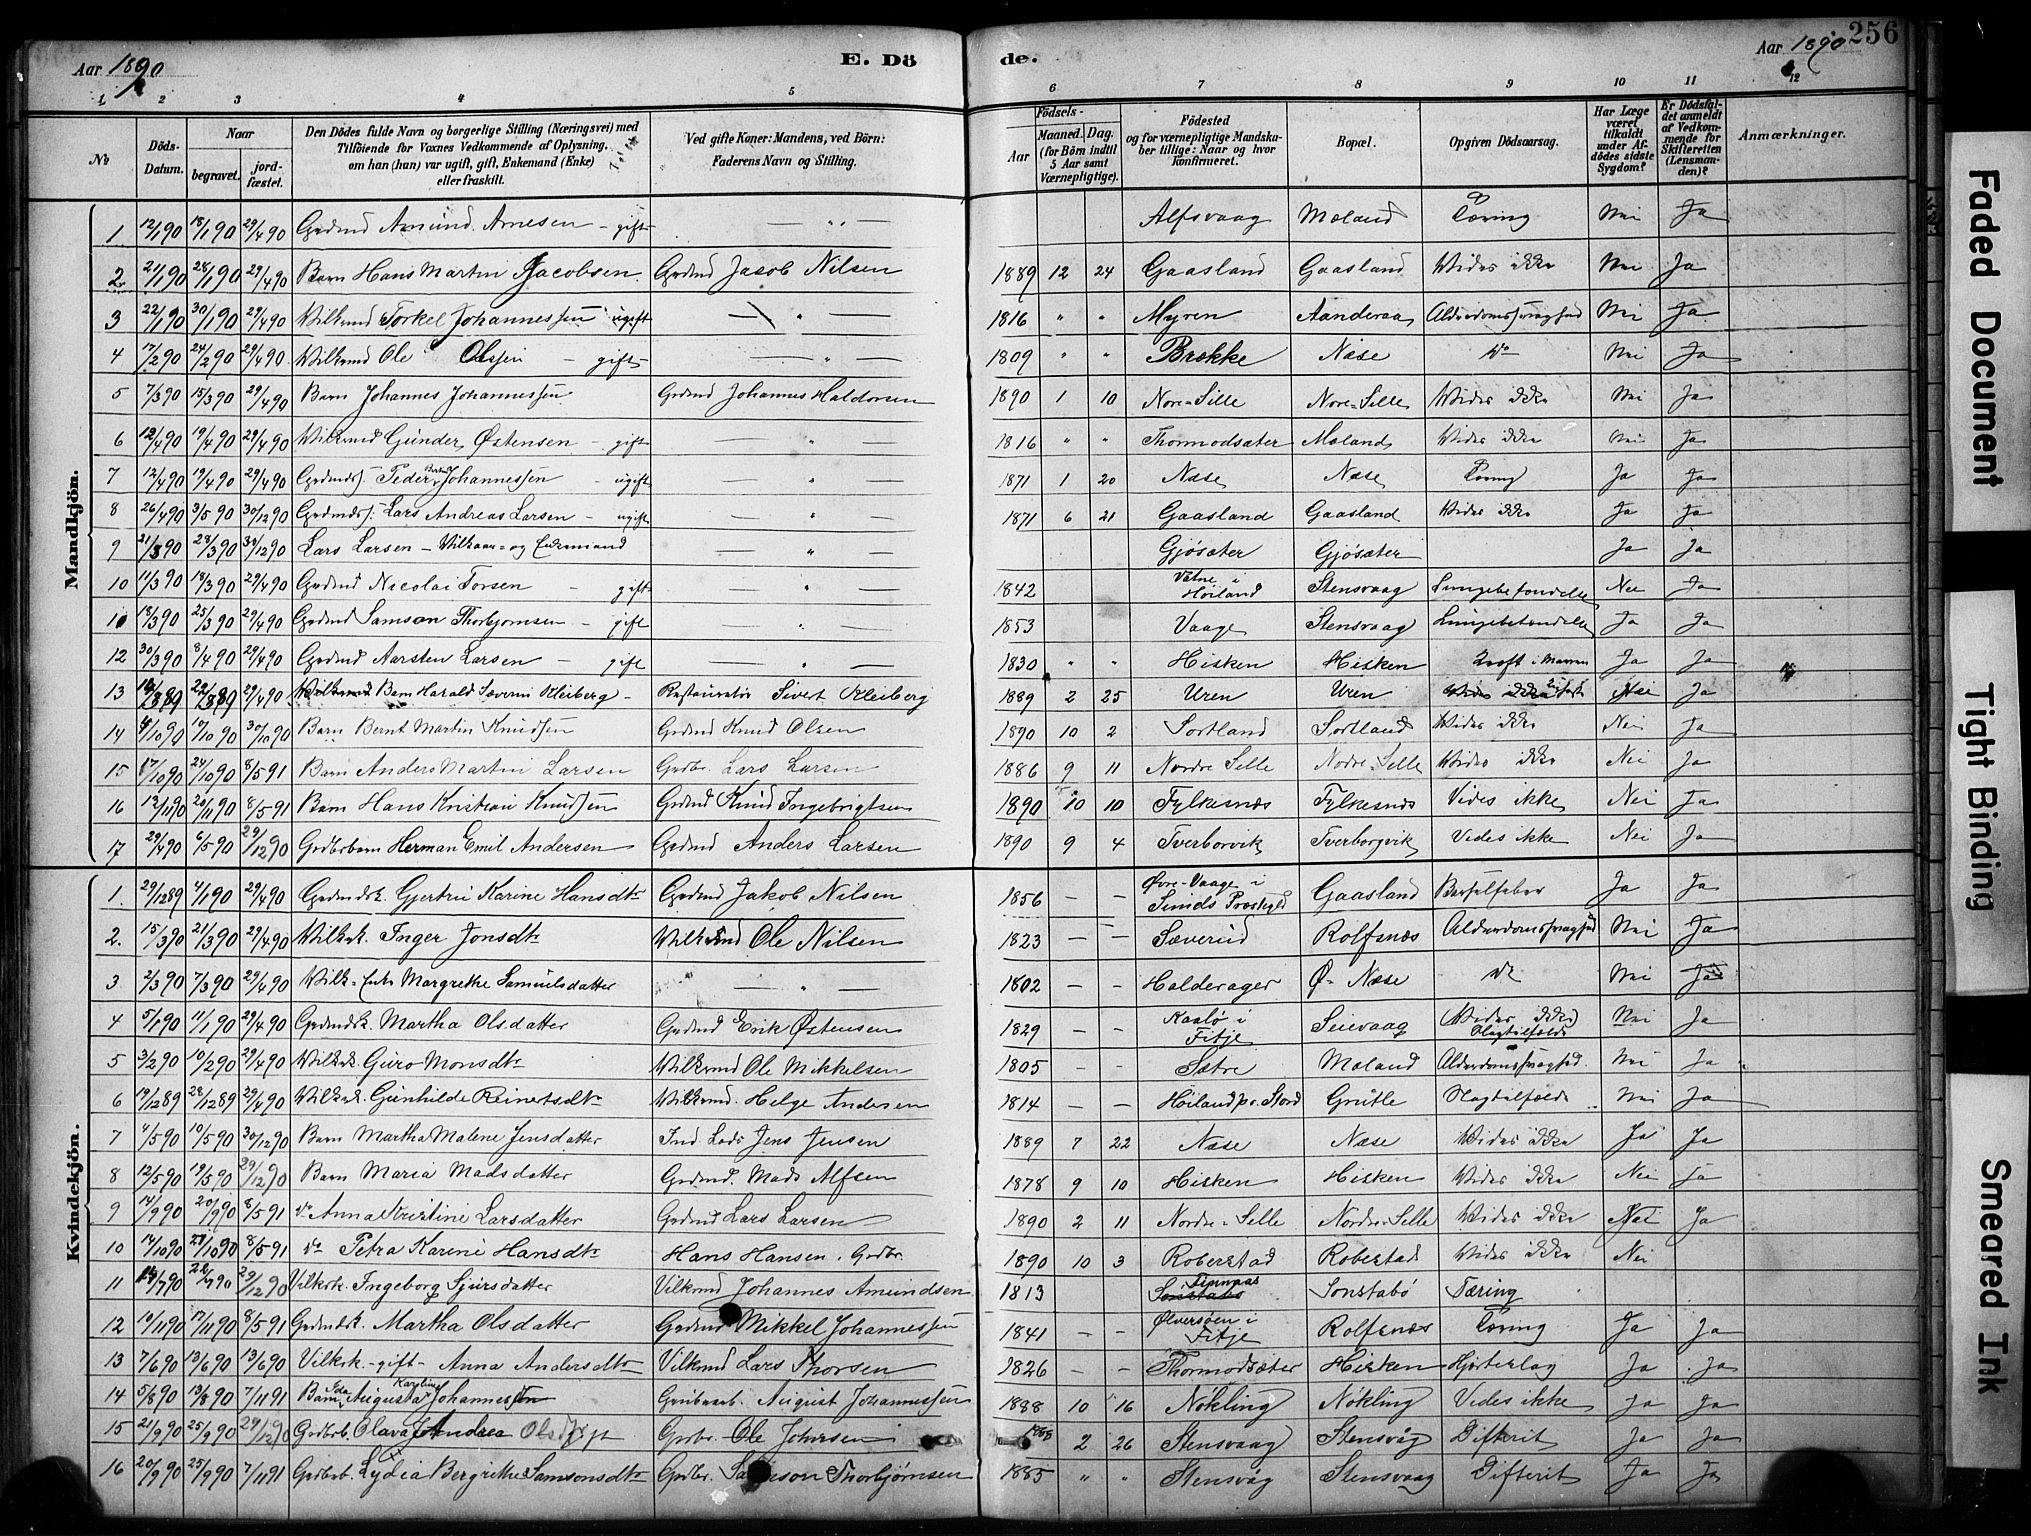 Aar 1890
E. Dö
de.
Aar 1890
256
1. 2 3 4 5 6 7 8 9 10 11 12
No
Döds-Datum.
Naar
begravet.
jord-fæstet.
Den Dödes fulde Navn og borgerlige Stilling (Næringsvei) med
Tilföiende for Voxnes Vedkommende af Oplysning,
om han (hun) var ugift, gift, Enkemand (Enke)
eller fraskilt.
Ved gifte Koner: Mandens, ved Börn:
Faderens Navn og Stilling.
Födsels-
Aar
Maaned. Dag.
(for Börn indtil
5 Aar samt
Værnepligtige).
Födested
og for værnepligtige Mandska-
ber tillige: Naar og hvor
konfirmeret.
Bopæl.
Opgiven Dödsaarsag.
Har Læge
været
tilkaldt
under Af-
dödes sidste
Sygdom?
Er Dödsfal-
det anmeldt
af Vedkom-
mende for
Skifteretten
(Lensman-
den)?
Anmærkninger.
Mandkjön.
1 12/1 90 18/1 90 29/4 90 Gaardmd Amund Arnesen - gift — " — Alfsvaag Mæland Tæring Nei Ja
2 21/1 90 28/1 90 29/4 90 Barn Hans Martin Jacobsen Gaardmd Jacob Nilsen 1889 12 24 Gaasland Gaasland Vides ikke Nei Ja
3 22/1 90 30/1 90 29/4 90 Vilkmd Torkel Johannessen ugift — " — 1816 " " Myren Aanderaa Alderdomssvaghed Nei Ja
4 17/2 90 24/2 90 29/4 90 Vilkmd Ole Olsen - gift — " — 1809 " " Brække Næse do Nei Ja
5 7/3 90 15/3 90 29/4 90 Barn Johannes Johannessen Gaardmd Johannes Haldorsen 1890 1 10 Nore-Selle Nore-Selle Vides ikke Nei Ja
6 12/4 90 19/4 90 29/4 90 Vilkmd Gunder Østensen - gift — " 1816 " " Thormodsæter Mæland Vides ikke Nei Ja
7 12/4 90 19/4 90 29/4 90 Gaardmds. Peder Johannessen - ugift — " 1871 1 20 Næse Næse Tæring Ja Ja
8 26/4 90 3/5 90 30/12 90 Gaardmds. Lars Andreas Larsen - ugift — " 1871 6 21 Gaasland Gaasland Vides ikke Ja Ja
9 21/3 90 28/3 90 30/12 90 Lars Larsen - Vilkaar- og Enkemand — " — Gjøsæter Gjøsæter Ja Ja
10 11/3 90 18/3 90 29/4 90 Gaardmd Nicolai Torsen gift — " — 1842 Vatne i Høiland Stensvaag Lungebetændelse Nei Ja
11 18/3 90 25/3 90 29/4 90 Gaardmd Samson Thorbjørnsen - gift — " — 1853 Vaage Stensvaag Lungebetændelse Ja Ja
12 30/3 90 8/4 90 29/4 90 Gaardmd Aarsten Larsen - gift — " — 1830 " " Hisken Hisken Kræft i Maven Ja Ja
13 22/3 89 29/4 90 Barn Harald Severin Kleiberg - Restauratør Sivert Kleiberg 1889 2 25 Uren Uren Vides ikke Nei Ja
14 /10 90 17/10 90 30/10 90 Barn Bernt Martin Knudsen Gaardmd Knud Olsen 1890 10 2 Sortland Sortland Vides ikke Nei Ja
15 17/10 90 24/10 90 8/5 91 Barn Anders Martin Larsen Gaardbr. Lars Larsen 1886 9 11 Nordre Selle Nodre-Selle Vides ikke Nei Ja
16 12/11 90 20/11 90 8/5 91 Barn Hans Kristian Knudsen Gaardmd Knud Ingebrigtsen 1890 10 10 Fylkesnæs Fylkesnæs Vides ikke Nei Ja
17 29/4 90 6/5 90 29/12 90 Grdbrbarn Herman Emil Andersen Gaardmd Anders Larsen 1890 9 4 Tverborvik Tverborgvik Vides ikke Nei Ja
Kvindekjön.
1. 29/12 89 4/1 90 29/4 90 Gaardmdsk. Gjertru Karine Hansdtr Gaardmd Jakob Nilsen 1856 — — Øvre-Vaage i Sunds Præstegjd Gaasland Barselfeber Ja Ja
2. 15/3 90 21/3 90 29/4 90 Vilksk. Inger Jonsdtr Vilkmd Ole Nilsen 1823 — — Sæverud Rolfsnæs Alderdomssvaghed Nei Ja
3 2/3 90 7/3 90 29/4 90 Vilk-Enke Margrethe Samuelsdatter — " — 1802 — — Halderager Ø. Næse do Nei Ja
4 5/1 90 11/1 90 29/4 90 Gaardmdsk. Martha Olsdatter Gaardmd Erik Østensen 1829 — — Kaalø i Fitje Seievaag Vides ikke Slagtilfælde Nei Ja
5 3/2 90 10/2 90 29/4 90 Vilksk. Guro Monsdtr Vilkmd Ole Mikkelsen 1805 — — Sætre Mæland Alderdomssvaghed. Nei Ja
6 19/12 89 28/12 89 29/4 90 Vilksk. Gunhilde Reinertsdtr Vilkmd. Helge Andersen 1814 — — Høiland pr. Stord Grutle Slagtilfælde Nei Ja
7 4/5 90 10/5 90 30/12 90 Barn Martha Malene Jensdatter Ind. Lods Jens Jensen 1889 7 22 Næse Næse Vides ikke Ja Ja
8 12/5 90 19/5 90 29/12 90 Barn Maria Madsdatter Gaardmd. Mads Alfsen 1878 9 10 Hisken Hisken Vides ikke Nei Ja
9 14/9 90 20/9 90 8/5 91 do Anna Kristine Larsdatter Gaardmd Lars Larsen 1890 2 11 Nordre-Selle Nordre-Selle Vides ikke Nei Ja
10 14/10 90 21/10 90 8/5 91 do Petra Karine Hansdtr Hans Hansen, Gaardbr. 1890 10 3 Roberstad Roberstad Vides ikke Nei
11 /7 90 22/7 90 29/12 90 Vilksk. Ingeborg Sjursdatter Vilkmd Johannes Amundsen 1813 Sonstabø Finnaas Sonstabø Tæring
12 10/11 90 17/11 90 8/5 91 Gaardmdsk. Martha Olsdatter Gaardmd Mikkel Johannessen 1841 — — Ølversøen i Fitje Rolfsnæs Tæring Ja Ja
13 7/6 90 13/6 90 13/6 90 Vilksk. - gift - Anna Andersdtr Vilkmd Lars Thorsen 1826 — — Thormodsæter Hisken Hjerteslag Ja Ja
14 5/8 90 13/8 90 7/11 91 Barn Augusta Karoline Johannessen Grubearb. August Johannessen 1888 10 16 Nökling Nökling Vides ikke Ja Ja
15 21/9 90 25/9 90 29/12 90 Gaardbrb. Olava Andrea Gaardbr. Ole Johnsen 2 26 Stensvaag Stensvåg Difterit Ja Ja
16 20/9 90 25/9 90 7/11 91 Gaardbrb. Lydia Bergrethe Samsonsdtr Gaardbr. Samson Thorbjørnsen 1885 " " Stensvåg Stensvaag Difterit Ja Ja
Faded Document
Tight Binding
Smeared Ink